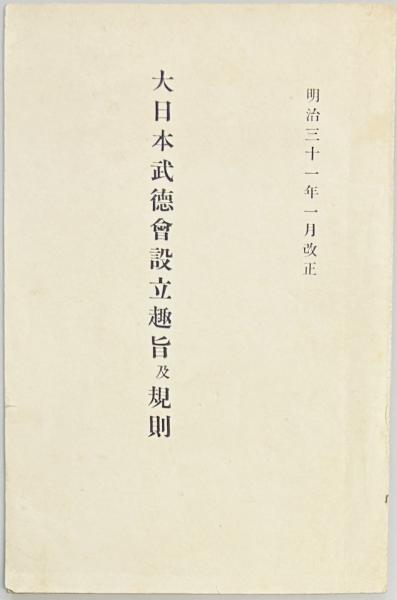 明治三十一年一月改正
大日本武德會設立趣旨及規則